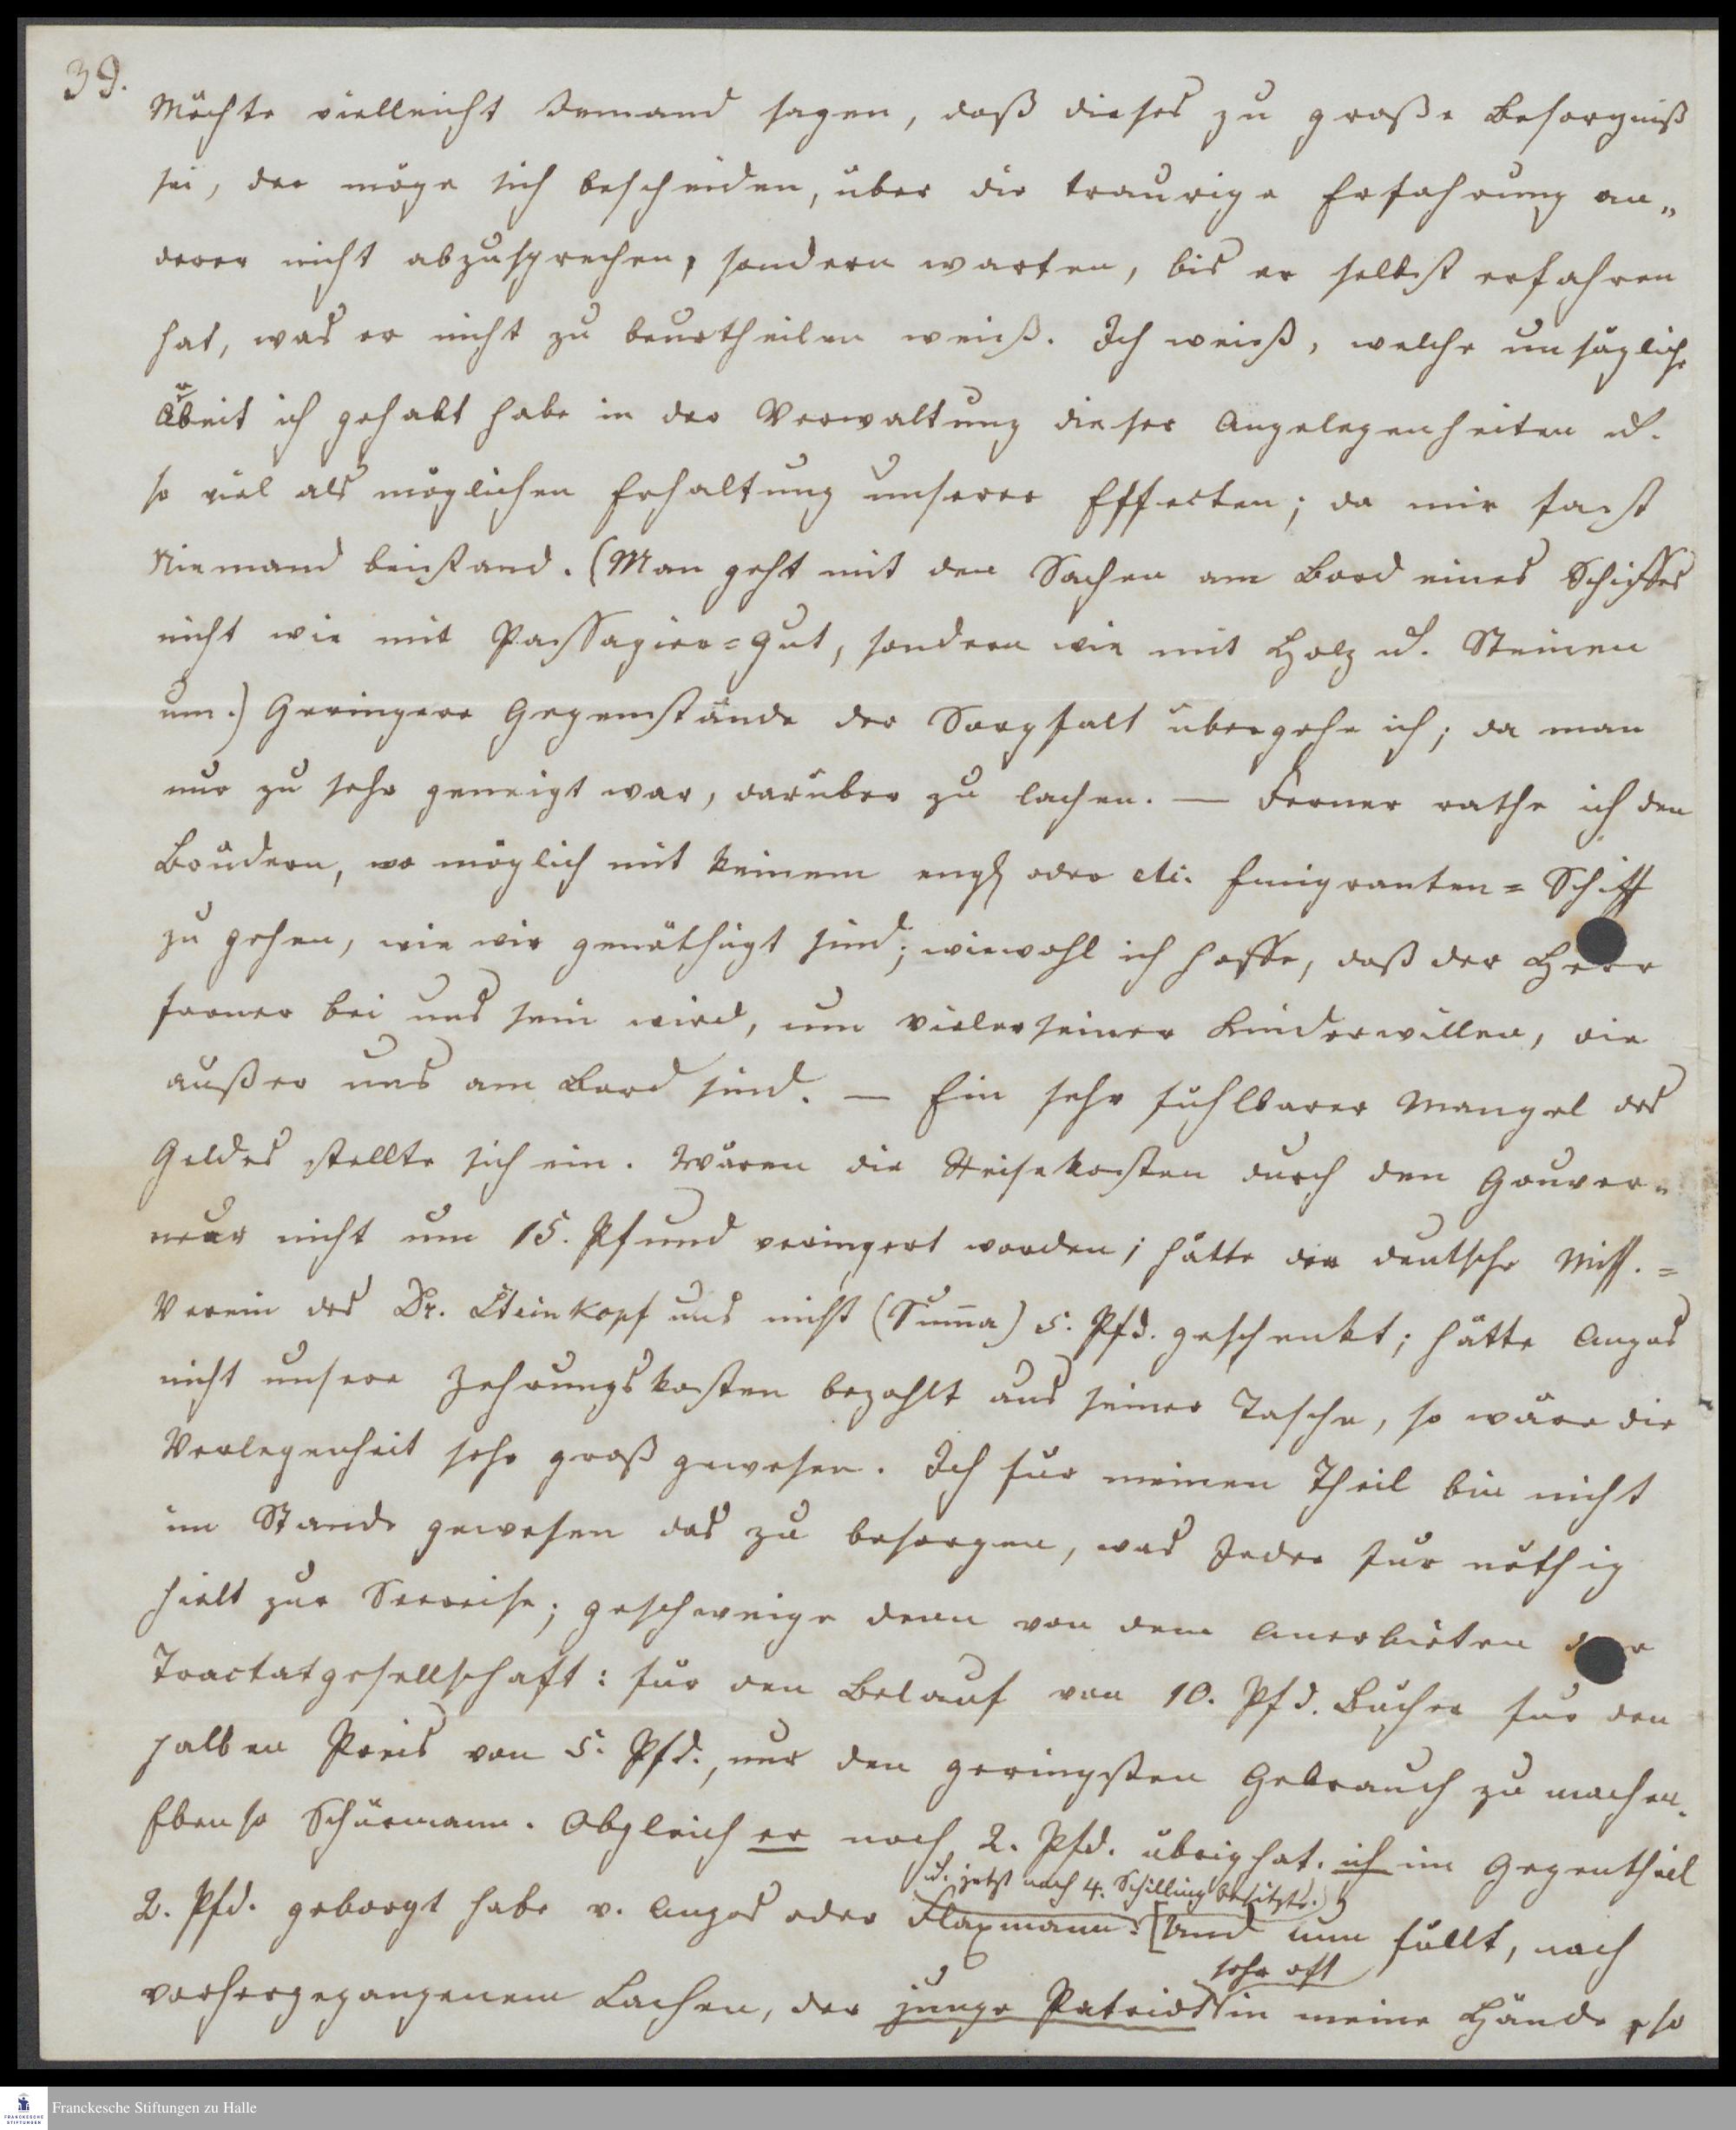 39.
Möchte vielleicht Jemand sagen, daß dieses zu große Besorgniß
sei, der möge sich bescheiden, über die traurige Erfahrung an„
derer nicht abzusprechen, sondern warten, bis er selbst erfahren
hat, was er nicht zu beurtheilen weiß. Ich weiß, welche unsägliche
Arbeit ich gehabt habe in der Verwaltung dieser Angelegenheiten u.
so viel als möglichen Erhaltung unserer Effecten; da mir fast
Niemand beistand. (Man geht mit den Sachen am Bord eines Schiffes
nicht wie mit Passagier=Gut, sondern wie mit Holz u. Steinen
um.) Geringere Gegenstände der Sorgfalt übergehe ich; da man
nur zu sehr geneigt war, darüber zu lachen. — Ferner rathe ich den
Brüdern, wo möglich mit keinem engl. oder etc. Emigranten=Schiff
zu gehen, wie wir genöthigt sind; wiewohl ich hoffe, daß der Herr
ferner bei uns sein wird, um vieler seiner Kinder willen, die
außer uns am Bord sind. — Ein sehr fühlbarer Mangel des
Geldes stellte sich ein. Wären die Reisekosten durch den Gouver=
neur nicht um 15. Pfund veringert worden; hätte der deutsche Miss.=
Verein des Dr. Steinkopf uns nicht (Summa) 5. Pfd. geschenkt; hätte Angas
nicht unsere Zehrungskosten bezahlt aus seiner Tasche, so wäre die
Verlegenheit sehr groß gewesen. Ich für meinen Theil bin nicht
im Stande gewesen das zu besorgen, was Jeder für nöthig
hielt zur Seereise; geschweige denn von dem Anerbieten der
Tractatgesellschaft: für den Belauf von 10. Pfd. Bücher für den
halben Preis von 5. Pfd., nur den geringsten Gebrauch zu machen.
Ebenso Schürmann. Obgleich er noch 2. Pfd. übrig hat. ich im Gegentheil
u. jetzt noch 4. Schilling besitze.)
2. Pfd. geborgt habe v. Angas oder Flaxmann. [Und nun fällt, nach
sehr oft
vorhergegangenem Lachen, der junge Patriot in meine Hände, so
Franckesche Stiftungen zu Halle
FRANCKESCHE
STIFTUNGEN